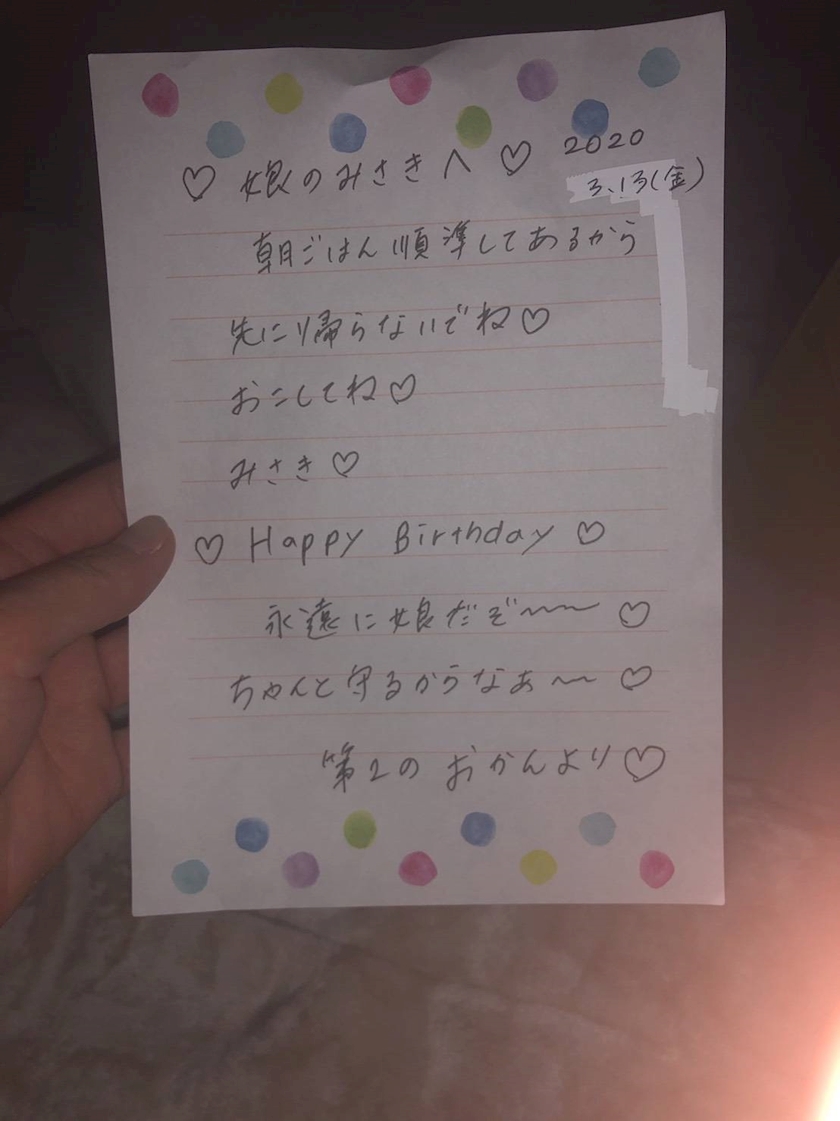 ♡ 娘のみさきへ ♡ 2020
3.13(金)
朝ごはん順準してあるから
先に帰らないでね♡
おこしてね♡
みさき♡
♡ Happy Birthday ♡
永遠に娘だぞ〜〜 ♡
ちゃんと守るからなぁ〜 ♡
第2の おかんより♡